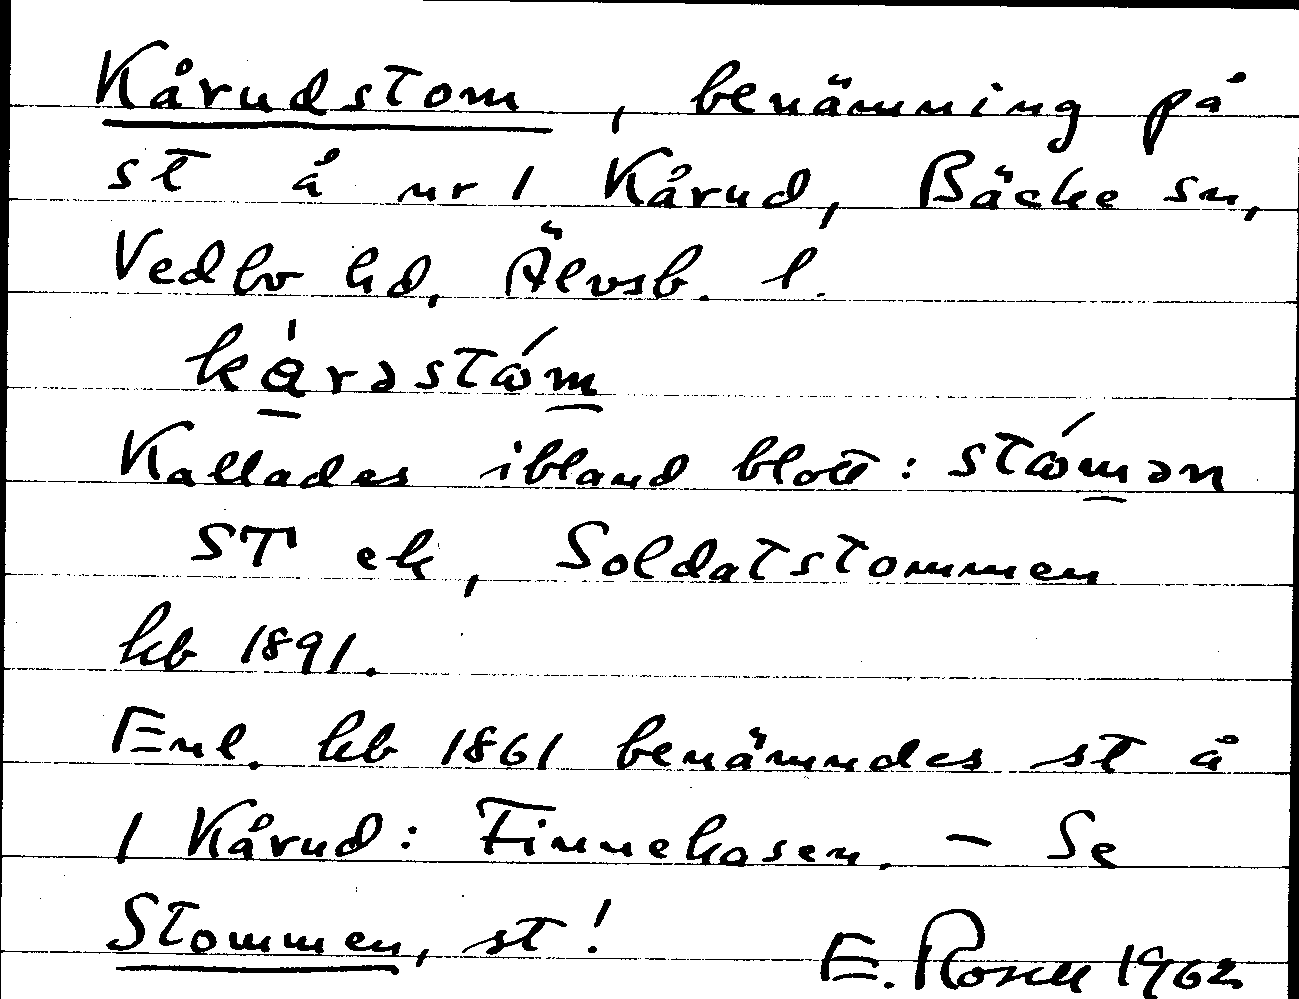 Kårudstom, benämning på
st å nr 1 Kårud, Bäcke sn,
Vedbo hd, Älvsb. l.
kа̊rəstɷ́m
Kallades ibland blott: stɷ́mən
ST ek, Soldatstommen
kb 1891.
Enl. kb 1861 benämndes st å
1 Kårud: Finnekasen. – Se
Stommen, st!
E. Rosell 1962